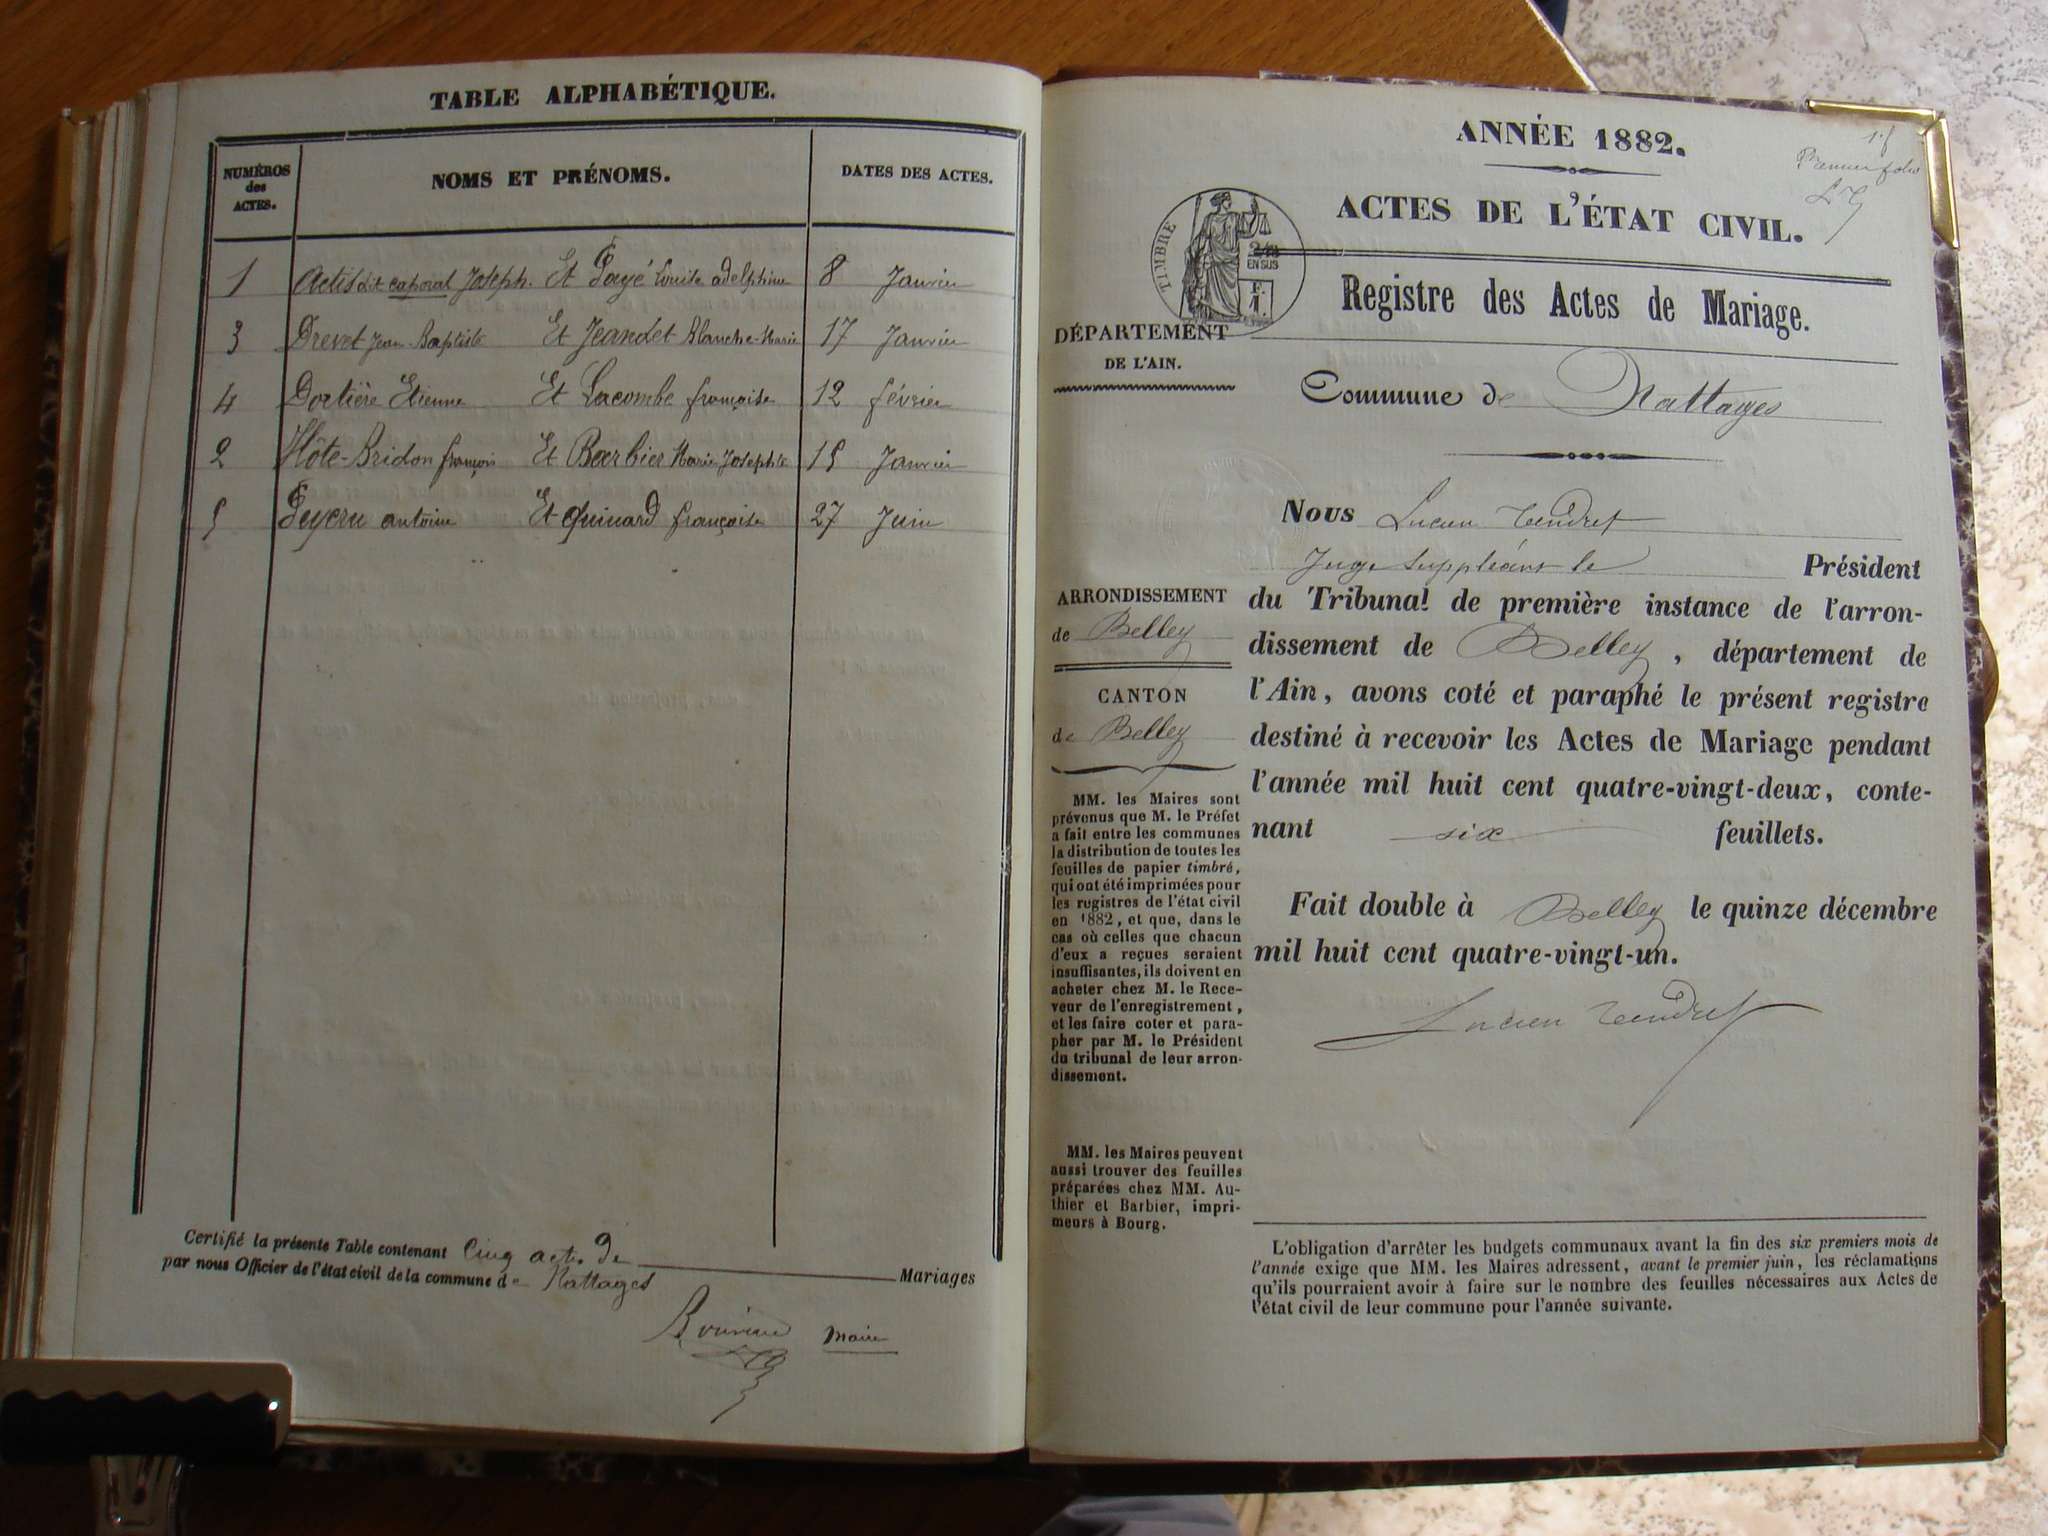 TABLE ALPHABÉTIQUE.
NUMÉROS des ACTES. NOMS ET PRÉNOMS. DATES DES ACTES.
1 Actis dit caporal Joseph. Et Payé Louise adelphine 8 Janvier
3 Drevet Jean-Baptiste Et Jeandet Blanche-Marie 17 Janvier
4 Dortière Etienne Et Lacombe françoise 12 février
2 Hôte-Bridon françois Et Barbier Marie Josephte 15 Janvier
5 Peyeru antoine Et quinard françoise 27 Juin
Certifié la présente Table contenant Cinq actes de Mariages
par nous Officier de l'état civil de la commune de Nattages
maire
1er f
Premier folio
L T
ANNÉE 1882.
ACTES DE L'ÉTAT CIVIL.
TIMBRE
2/10
EN SUS
F.
1.
Registre des Actes de Mariage.
DÉPARTEMENT
DE L'AIN.
Commune de Nattages
Nous Lucien Tendret
Juge suppléant le Président
ARRONDISSEMENT
de Belley
CANTON
de Belley
du Tribunal de première instance de l'arron-
dissement de Belley, département de
l'Ain, avons coté et paraphé le présent registre
destiné à recevoir les Actes de Mariage pendant
l'année mil huit cent quatre-vingt-deux, conte-
nant six feuillets.
Fait double à Belley le quinze décembre
mil huit cent quatre-vingt-un.
Lucien Tendret
MM. les Maires sont
prévenus que M. le Préfet
a fait entre les communes
la distribution de toutes les
feuilles de papier timbré,
qui ont été imprimées pour
les registres de l'état civil
en 1882, et que, dans le
cas où celles que chacun
d'eux a reçues seraient
insuffisantes, ils doivent en
acheter chez M. le Rece-
veur de l'enregistrement,
et les faire coter et para-
pher par M. le Président
du tribunal de leur arron-
dissement.
MM. les Maires peuvent
aussi trouver des feuilles
préparées chez MM. Au-
thier et Barbier, impri-
meurs à Bourg.
L'obligation d'arrêter les budgets communaux avant la fin des six premiers mois de
l'année exige que MM. les Maires adressent, avant le premier juin, les réclamations
qu'ils pourraient avoir à faire sur le nombre des feuilles nécessaires aux Actes de
l'état civil de leur commune pour l'année suivante.